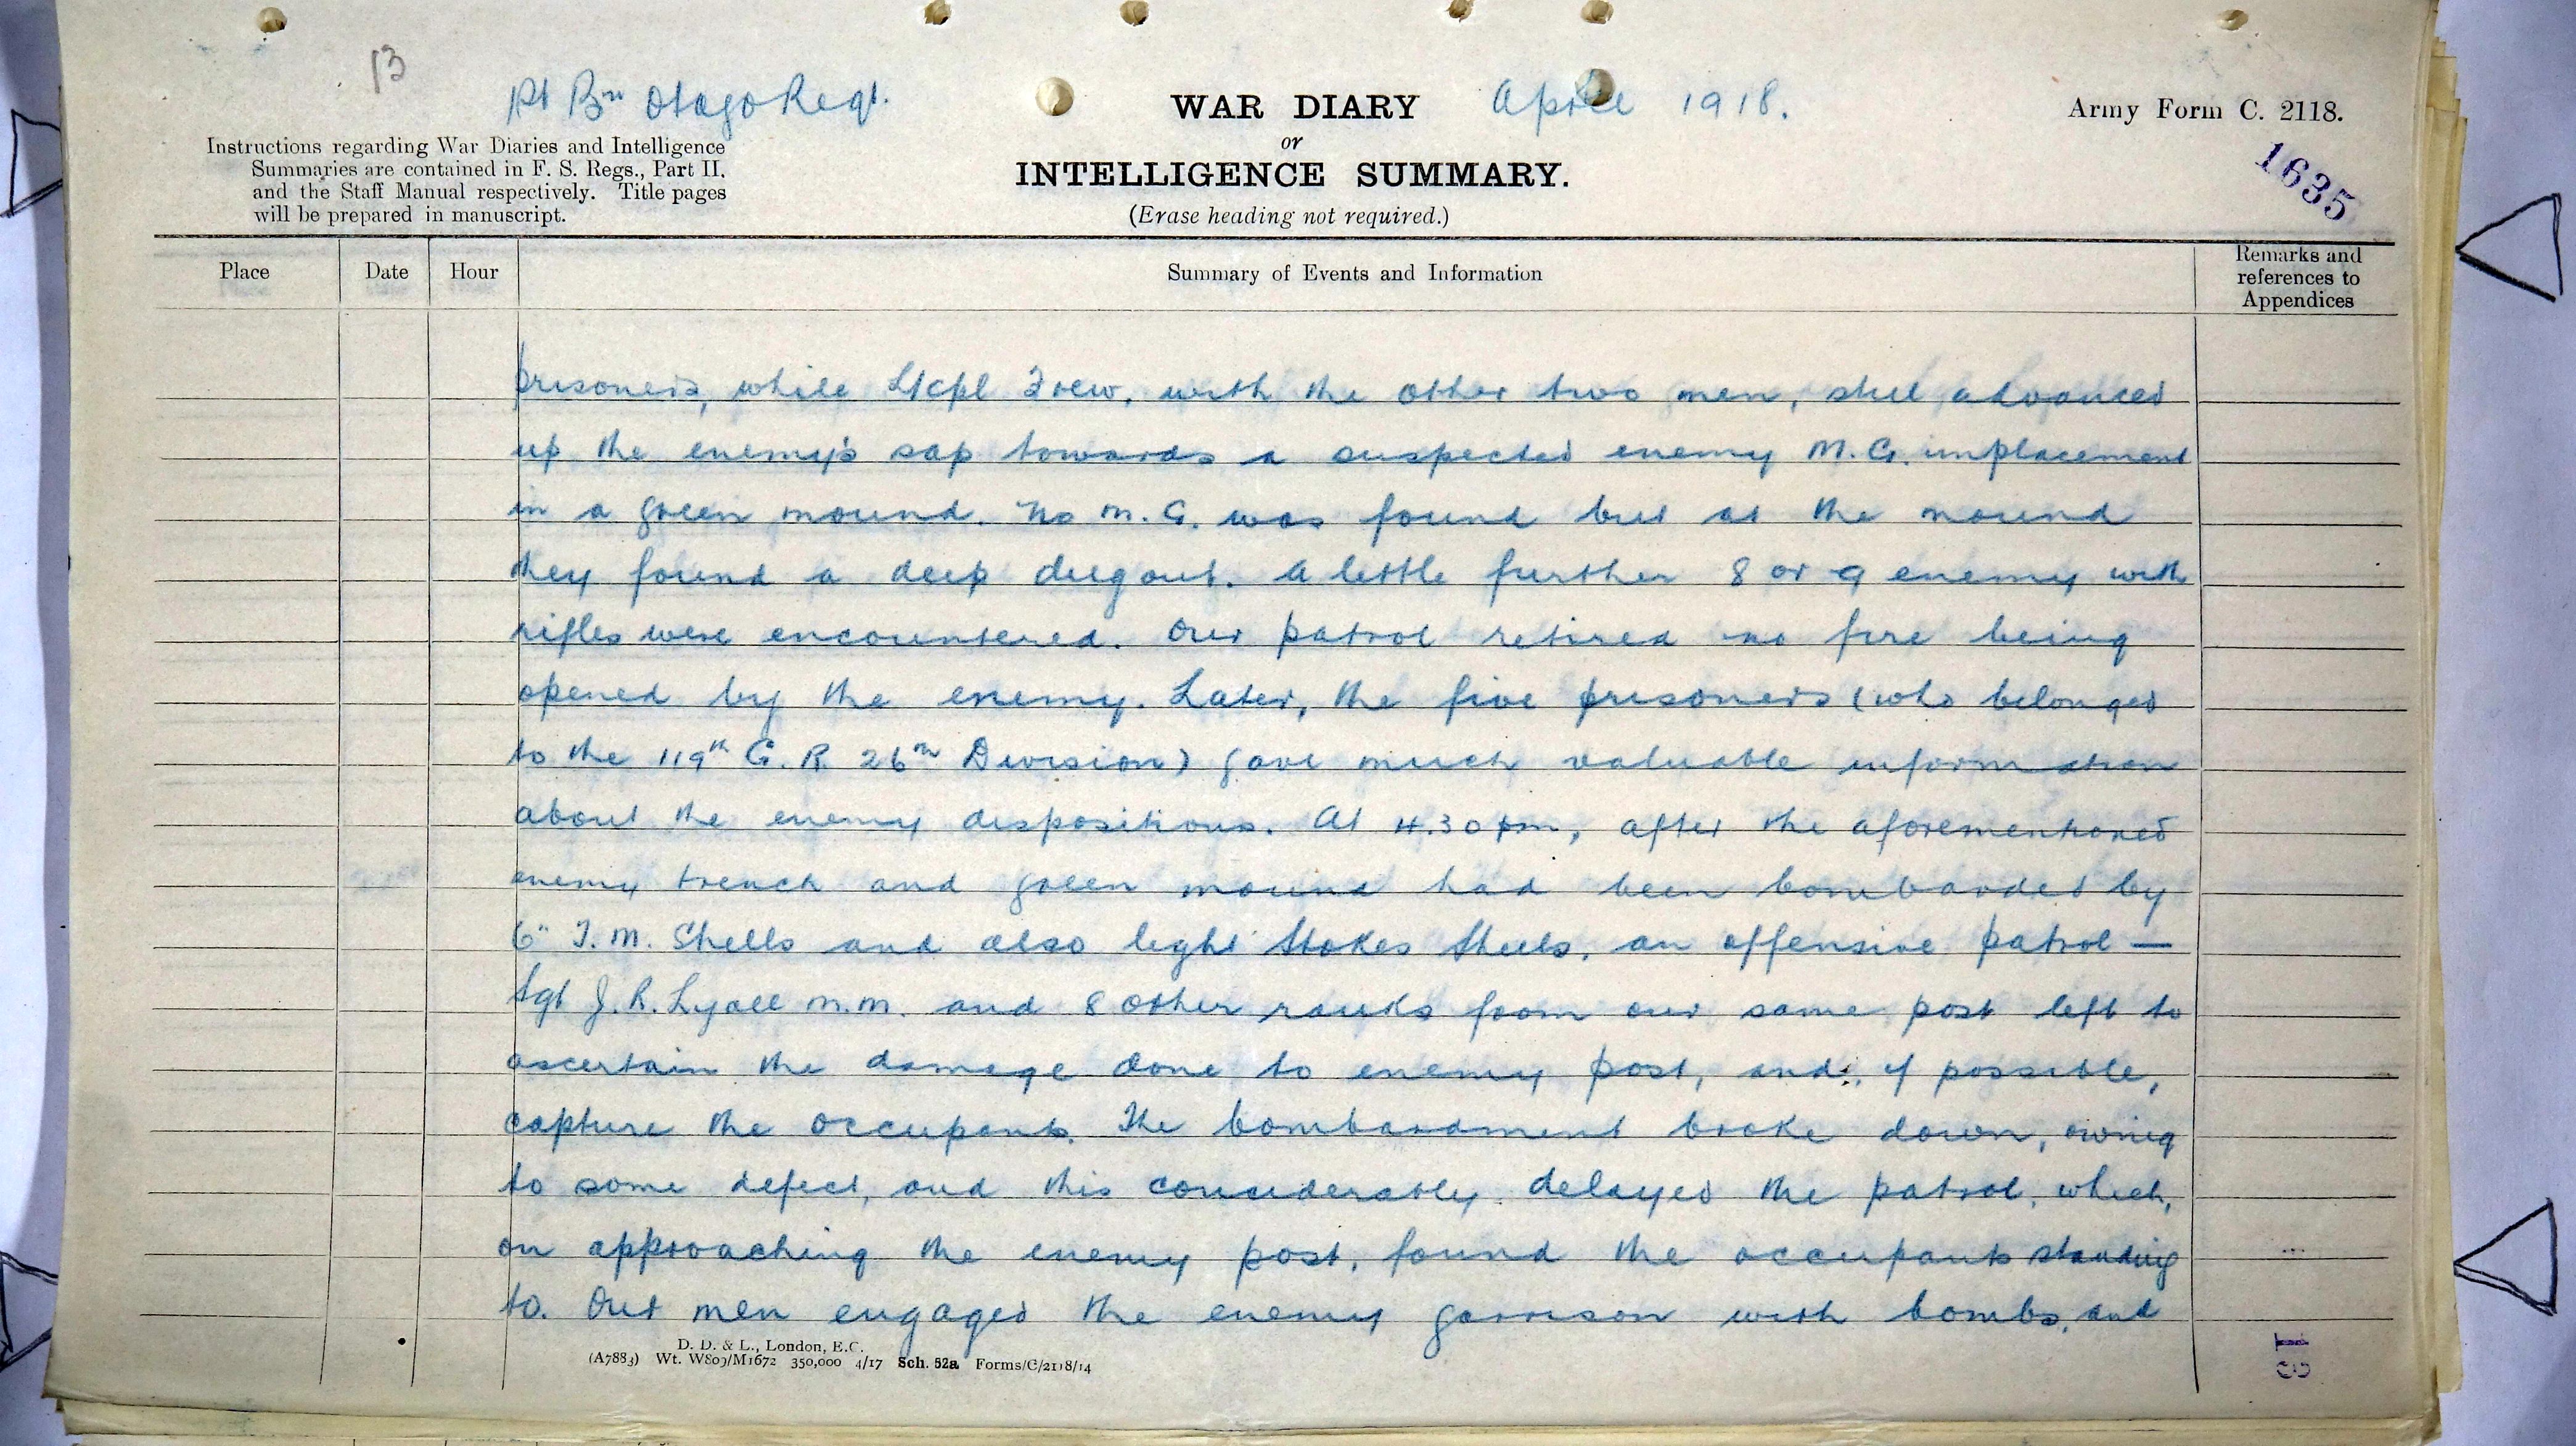 13
1st Bn Otago Regt.
WAR DIARY
April 1918.
Army Form C. 2118.
or
INTELLIGENCE SUMMARY.
(Erase heading not required.)
1635
Instructions regarding War Diaries and Intelligence
Summaries are contained in F. S. Regs., Part II.
and the Staff Manual respectively. Title pages
will be prepared in manuscript.
Place
Date
Hour
Summary of Events and Information
Remarks and
references to
Appendices
prisoners, while L/cpl Drew, with the other two men, still advanced
up the enemy's sap towards a suspected enemy M.G. implacement
in a green mound. No M.G. was found but at the mound
they found a deep dugout. A little further 8 or 9 enemy with
rifles were encountered. Our patrol retired no fire being
opened by the enemy. Later, the five prisoners (who belonged
to the 119th G.R. 26th Division) gave much valuable information
about the enemy dispositions. At 4.30 pm, after the aforementioned
enemy trench and green mound had been bombarded by
6" T.M. Shells and also light Stokes Shells, an offensive patrol —
Sgt J.R. Lyall M.M. and 8 other ranks from our same post left to
ascertain the damage done to enemy post, and, if possible,
capture the occupants. The bombardment broke down, owing
to some defect, and this considerably delayed the patrol, which,
on approaching the enemy post, found the occupants standing
to. Our men engaged the enemy garrison with bombs, and
D. D. & L., London, E.C.
(A7883) Wt. W809/M1672 350,000 4/17 Sch. 52a Forms/C/2118/14
13